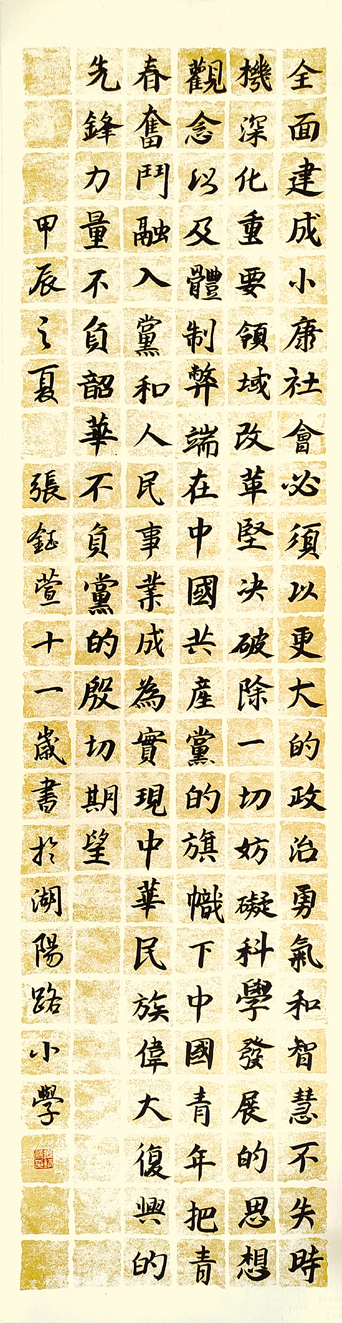 全面建成小康社會必須以更大的政治勇氣和智慧不失時
機深化重要領域改革堅决破除一切妨礙科學發展的思想
觀念以及體制弊端在中國共產黨的旗幟下中國青年把青
春奮鬥融入黨和人民事業成為實現中華民族偉大復興的
先鋒力量不負韶華不負黨的殷切期望
甲辰之夏 張鈺萱十一歲書於湖陽路小學